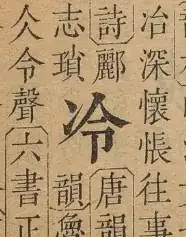 冶深懷悵往事
詩酈
志瑣
冷
唐韻
韻
仌令聲六書正